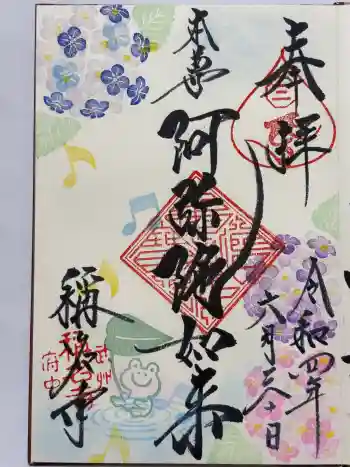 奉拝
令和四年
六月三十日
本尊
阿弥陀如来
武州
府中
稱名寺